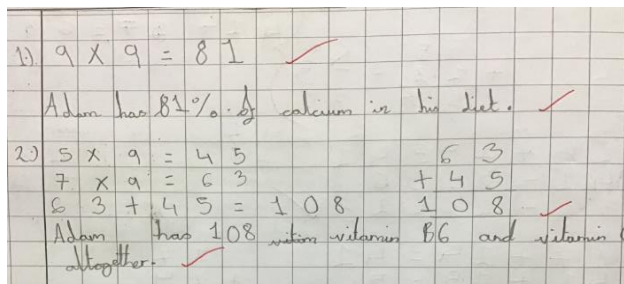 1.) 9 × 9 = 81
Adam has 81% of calcium in his diet.
2.) 5 × 9 = 45 63
7 × 9 = 63 + 45
63 + 45 = 108 108
Adam has 108 vitamin B6 and vitamin
altogether.